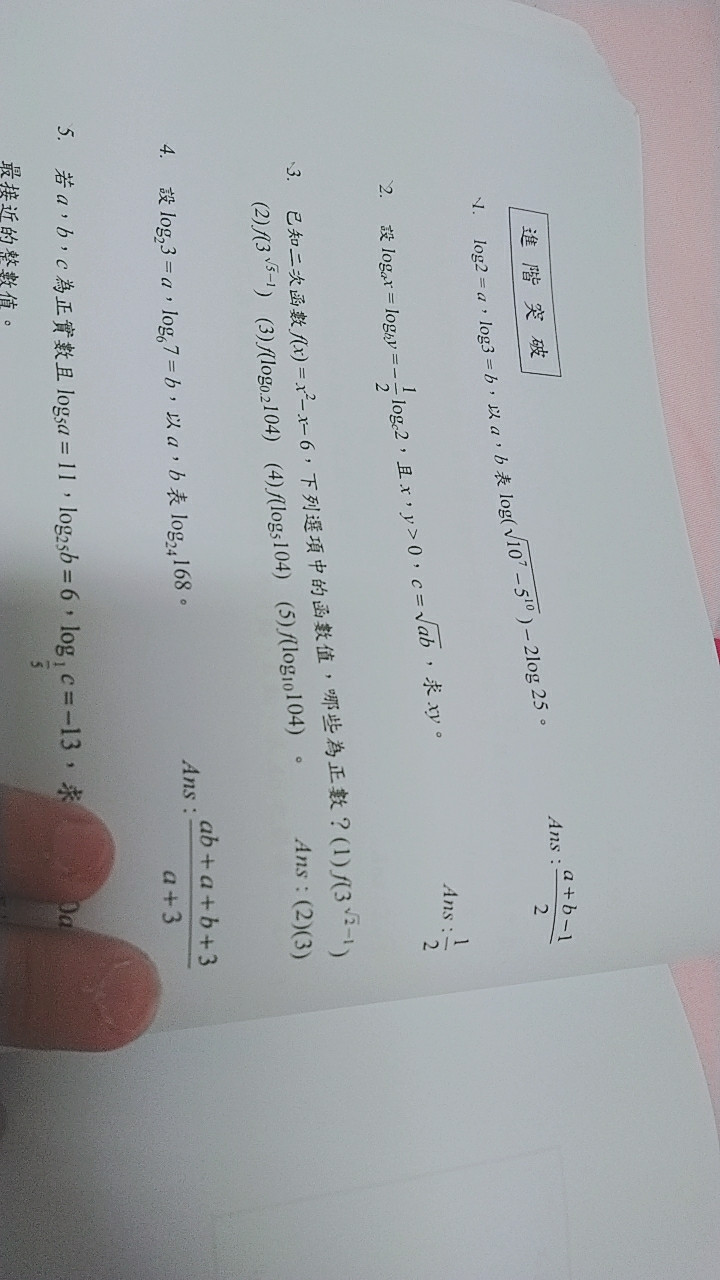 進階突破
1. log2=a，log3=b，以a，b表log(√(10⁷−5¹⁰))−2log25。
Ans：(a+b−1)/2
2. 設logₐx=log_b y=−1/2 log_c 2，且x，y>0，c=√ab，求xy。
Ans：1/2
3. 已知二次函數f(x)=x²−x−6，下列選項中的函數值，哪些為正數？(1)f(3^(√2−1))
(2)f(3^(√5−1)) (3)f(log₀.₂104) (4)f(log₅104) (5)f(log₁₀104)。
Ans：(2)(3)
4. 設log₂3=a，log₆7=b，以a，b表log₂₄168。
Ans：(ab+a+b+3)/(a+3)
5. 若a，b，c為正實數且log₅a=11，log₂₅b=6，log_(1/5) c=−13，求
最接近的整數值。